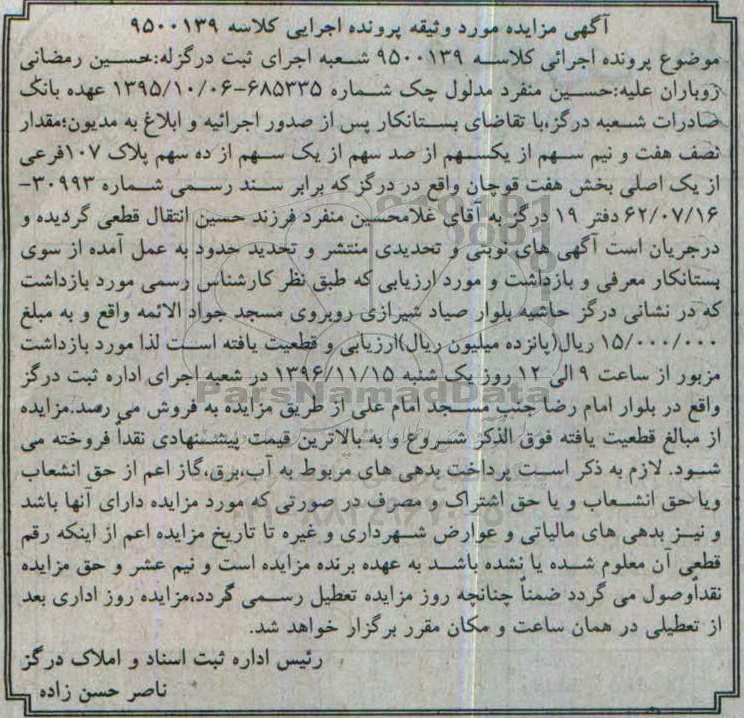 آگهی مزایده مورد وثیقه پرونده اجرایی کلاسه ۹۵۰۰۱۳۹
موضوع پرونده اجرائی کلاسه ۹۵۰۰۱۳۹ شعبه اجرای ثبت درگزله:حسین رمضانی
زوباران علیه:حسین منفرد مدلول چک شماره ۶۸۵۳۳۵-۱۳۹۵/۱۰/۰۶ عهده بانک
صادرات شعبه درگز،با تقاضای بستانکار پس از صدور اجرائیه و ابلاغ به مدیون؛مقدار
نصف هفت و نیم سهم از یکسهم از صد سهم از یک سهم از ده سهم پلاک ۱۰۷فرعی
از یک اصلی بخش هفت قوچان واقع در درگز که برابر سند رسمی شماره ۳۰۹۹۳-
۶۲/۰۷/۱۶ دفتر ۱۹ درگز به آقای غلامحسین منفرد فرزند حسین انتقال قطعی گردیده و
درجریان است آگهی های نوبتی و تحدیدی منتشر و تحدید حدود به عمل آمده از سوی
بستانکار معرفی و بازداشت و مورد ارزیابی که طبق نظر کارشناس رسمی مورد بازداشت
که در نشانی درگز حاشیه بلوار صیاد شیرازی روبروی مسجد جواد الائمه واقع و به مبلغ
۱۵/۰۰۰/۰۰۰ ریال(پانزده میلیون ریال)ارزیابی و قطعیت یافته است لذا مورد بازداشت
مزبور از ساعت ۹ الی ۱۲ روز یک شنبه ۱۳۹۶/۱۱/۱۵ در شعبه اجرای اداره ثبت درگز
ParsNamadData
واقع در بلوار امام رضا جنب مسجد امام علی از طریق مزایده به فروش می رسد.مزایده
از مبالغ قطعیت یافته فوق الذکر شروع و به بالاترین قیمت پیشنهادی نقداً فروخته می
شود. لازم به ذکر است پرداخت بدهی های مربوط به آب،برق،گاز اعم از حق انشعاب
ویا حق انشعاب و یا حق اشتراک و مصرف در صورتی که مورد مزایده دارای آنها باشد
و نیز بدهی های مالیاتی و عوارض شهرداری و غیره تا تاریخ مزایده اعم از اینکه رقم
قطعی آن معلوم شده یا نشده باشد به عهده برنده مزایده است و نیم عشر و حق مزایده
نقداًوصول می گردد ضمناً چنانچه روز مزایده تعطیل رسمی گردد،مزایده روز اداری بعد
از تعطیلی در همان ساعت و مکان مقرر برگزار خواهد شد.
رئیس اداره ثبت اسناد و املاک درگز
ناصر حسن زاده